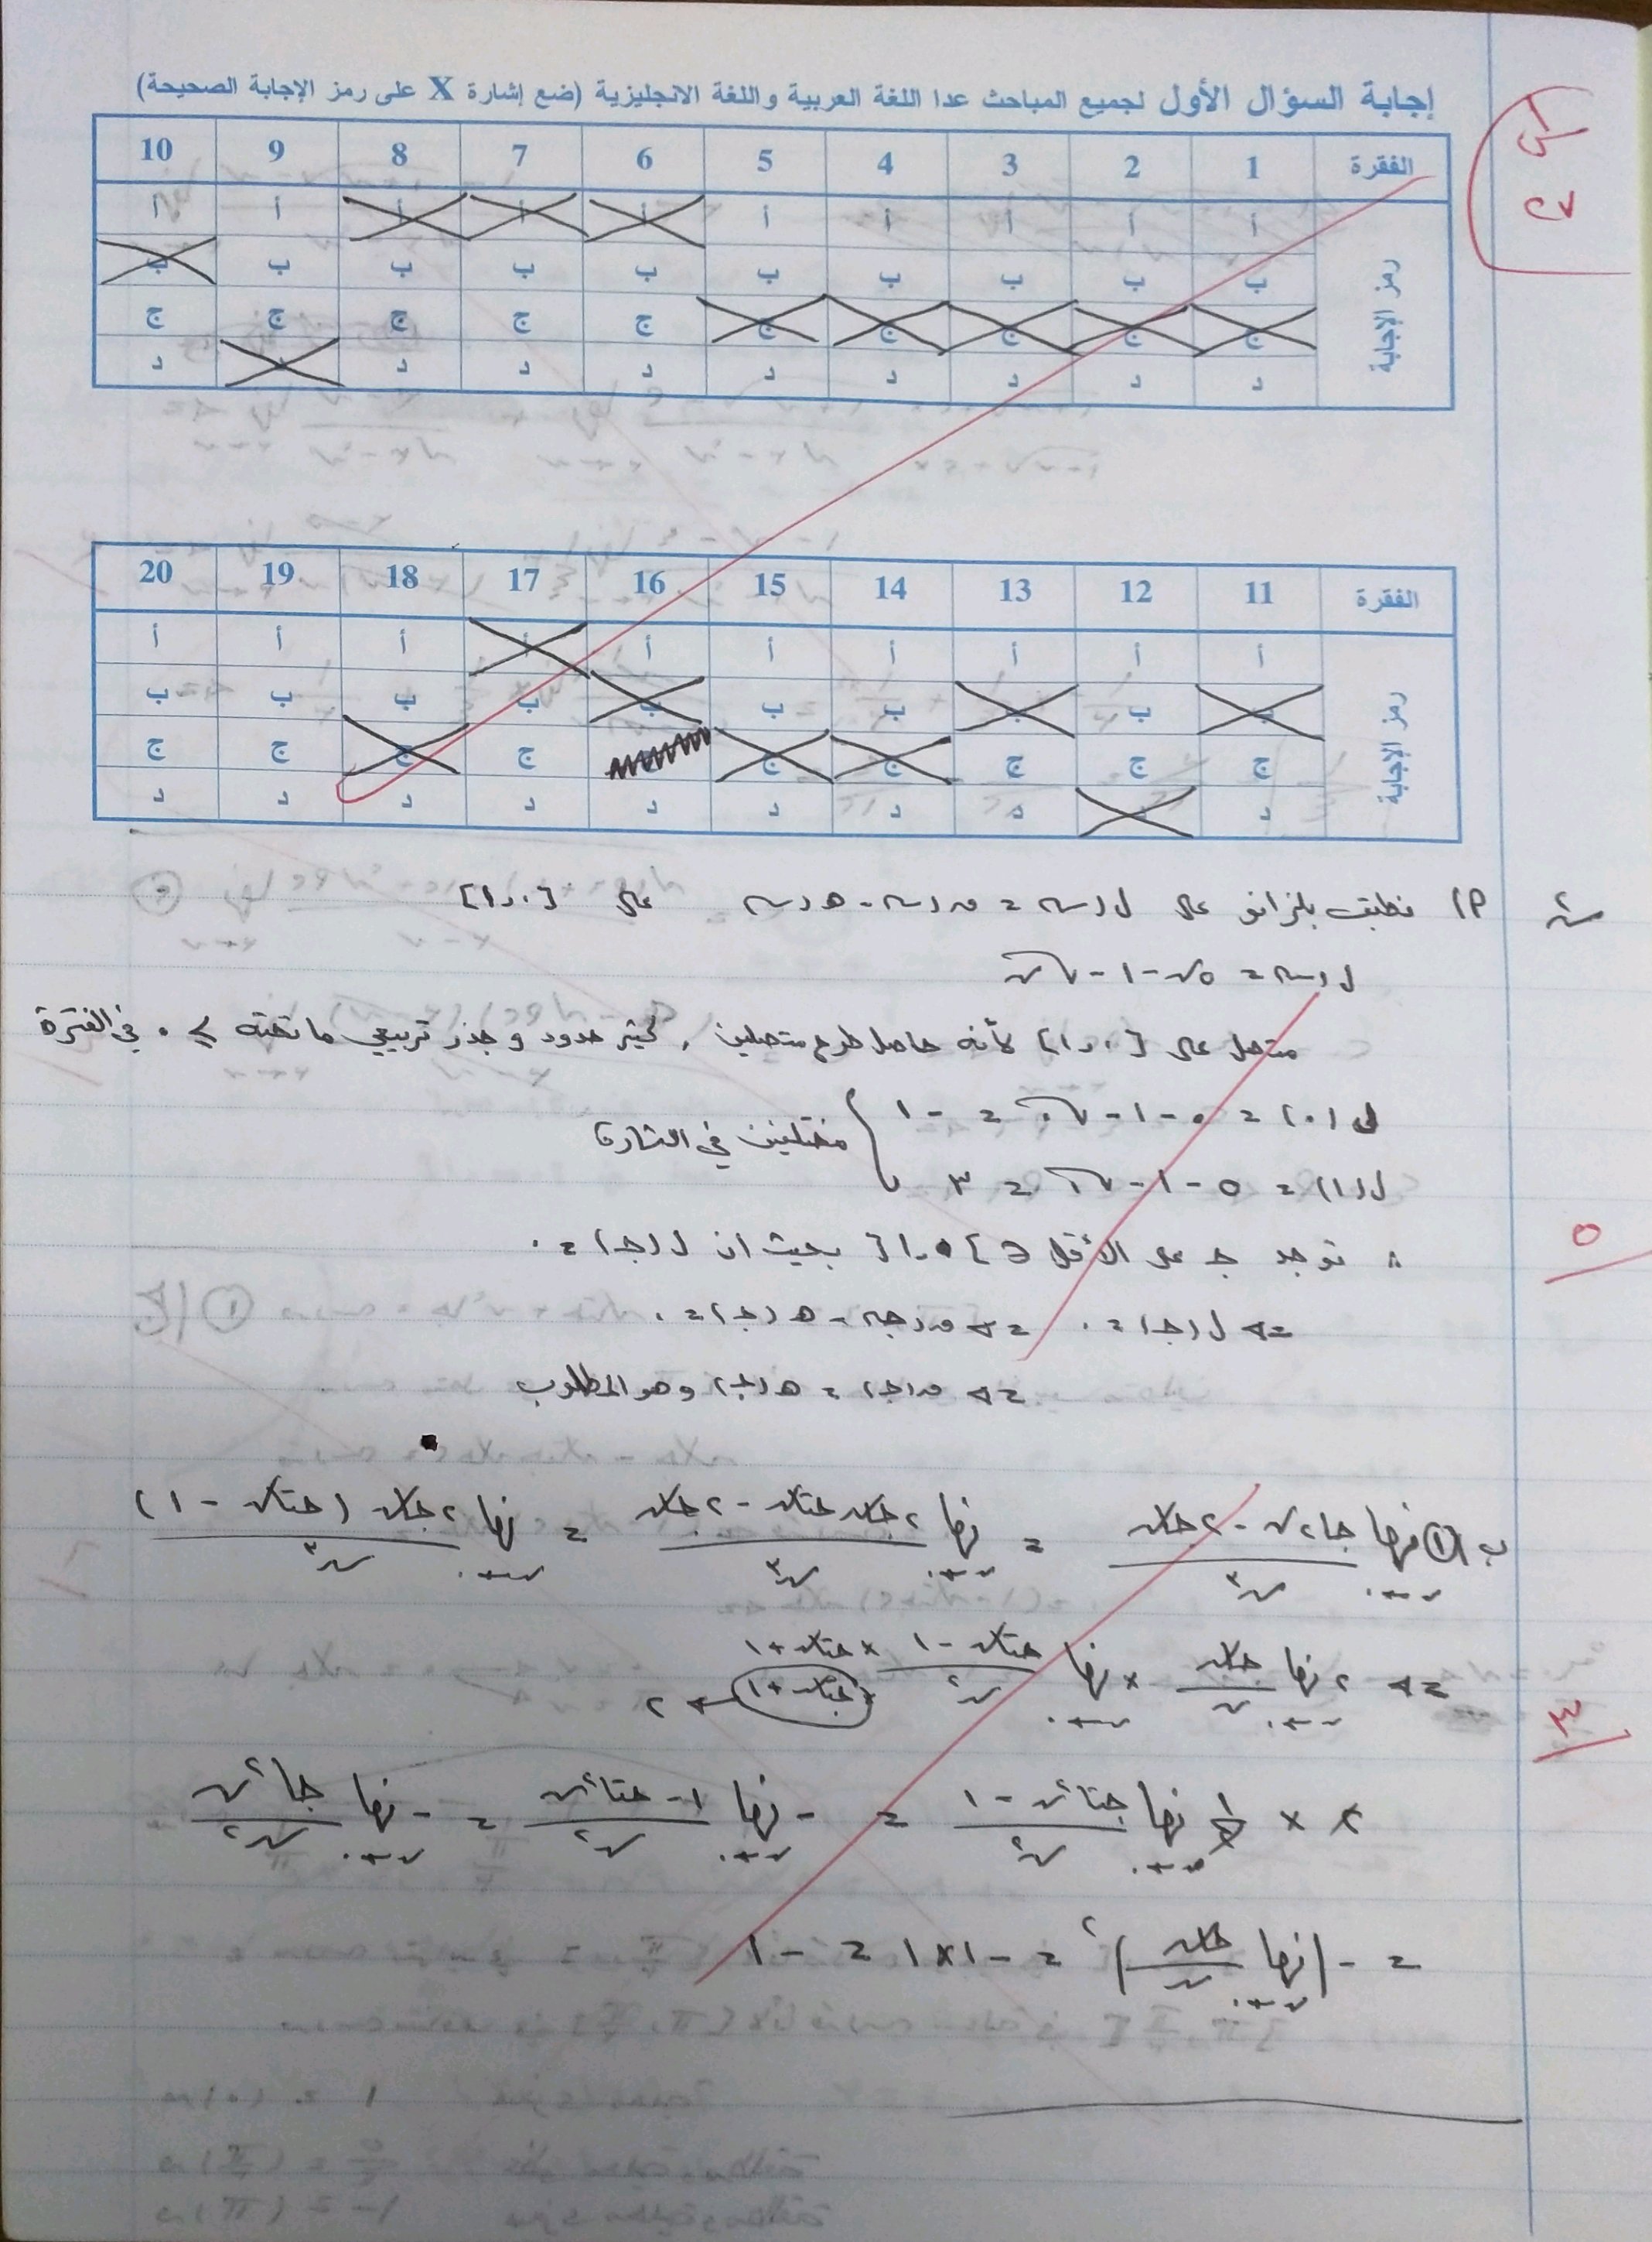 إجابة السؤال الأول لجميع المباحث عدا اللغة العربية واللغة الانجليزية (ضع إشارة X على رمز الإجابة الصحيحة)
الفقرة 1 2 3 4 5 6 7 8 9 10
رمز الإجابة
أ أ أ أ أ أ أ أ أ أ
ب ب ب ب ب ب ب ب ب ب
ج ج ج ج ج ج ج ج ج ج
د د د د د د د د د
الفقرة 11 12 13 14 15 16 17 18 19 20
رمز الإجابة
أ أ أ أ أ أ أ أ أ أ
ب ب ب ب ب ب ب ب ب
ج ج ج ج ج ج ج ج ج
د د د د د د د د د
P) نطبق بلزانو على ل(س) = ق(س) - ه(س) على [٠،١]
ل(س) = ٥س - ١ - √س
متصل على [٠،١] لأنه حاصل طرح متصلين، كثير حدود وجذر تربيعي ما تحته ≥ ٠ في الفترة
ل(٠) = ٠ - ١ - √٠ = -١
مختلفين في الشارة
ل(١) = ٥ - ١ - √١ = ٣
∴ توجد جـ على الأقل ∈ ]٠،١[ بحيث ان ل(جـ) = ٠
⇐ ل(جـ) = ٠ ⇐ ق(جـ) - ه(جـ) = ٠
⇐ ق(جـ) = ه(جـ) وهو المطلوب
٥
ب) ① نها س←٠ (جا٢س - ٢جاس)/س٣ = نها س←٠ (٢جاس جتاس - ٢جاس)/س٣ = نها س←٠ ٢جاس (جتاس - ١)/س٣
⇐ ٢ نها س←٠ جاس/س × نها س←٠ (جتاس - ١)/س٢ × (جتاس + ١)/(جتاس + ١) ← ٢
٣
٢ × ١/٢ نها س←٠ (جتا٢س - ١)/س٢ = - نها س←٠ (١ - جتا٢س)/س٢ = - نها س←٠ جا٢س/س٢
= - (نها س←٠ جاس/س)٢ = -١×١ = -١